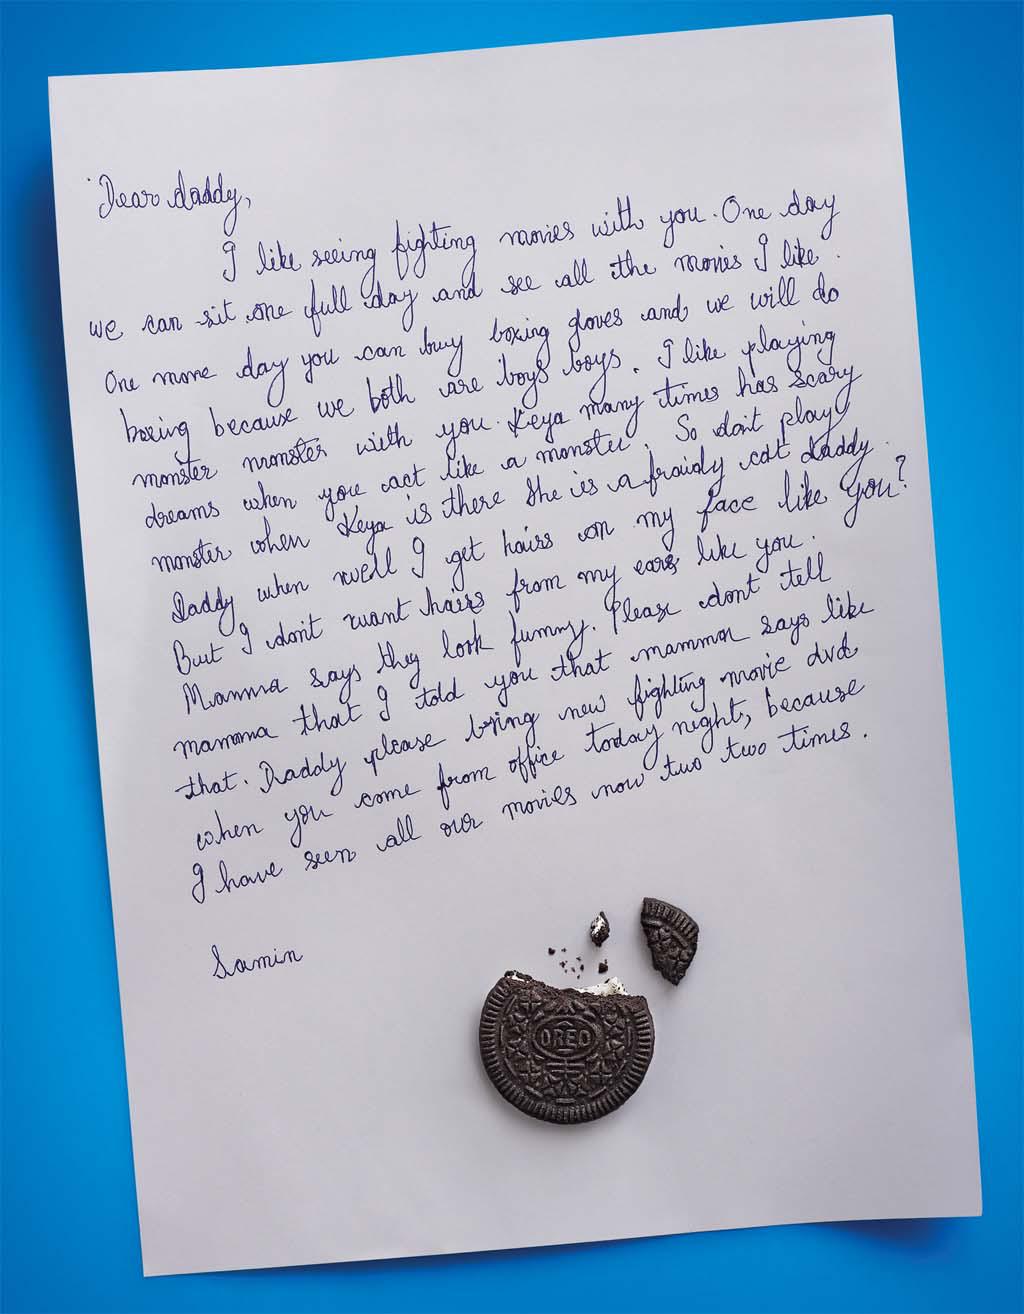 Dear daddy,
I like seeing fighting movies with you. One day
we can sit one full day and see all the movies I like.
One more day you can buy boxing gloves and we will do
boxing because we both are boys boys. I like playing
monster monster with you. Keya many times has scary
dreams when you act like a monster. So don't play
monster when Keya is there She is a fraidy cat daddy.
Daddy when will I get hairs on my face like you?
But I don't want hairs from my ears like you.
Mamma says they look funny. Please dont tell
mamma that I told you that mamma says like
that. Daddy please bring new fighting movie dvd
when you come from office today night, because
I have seen all our movies now two two times.
Samin
OREO